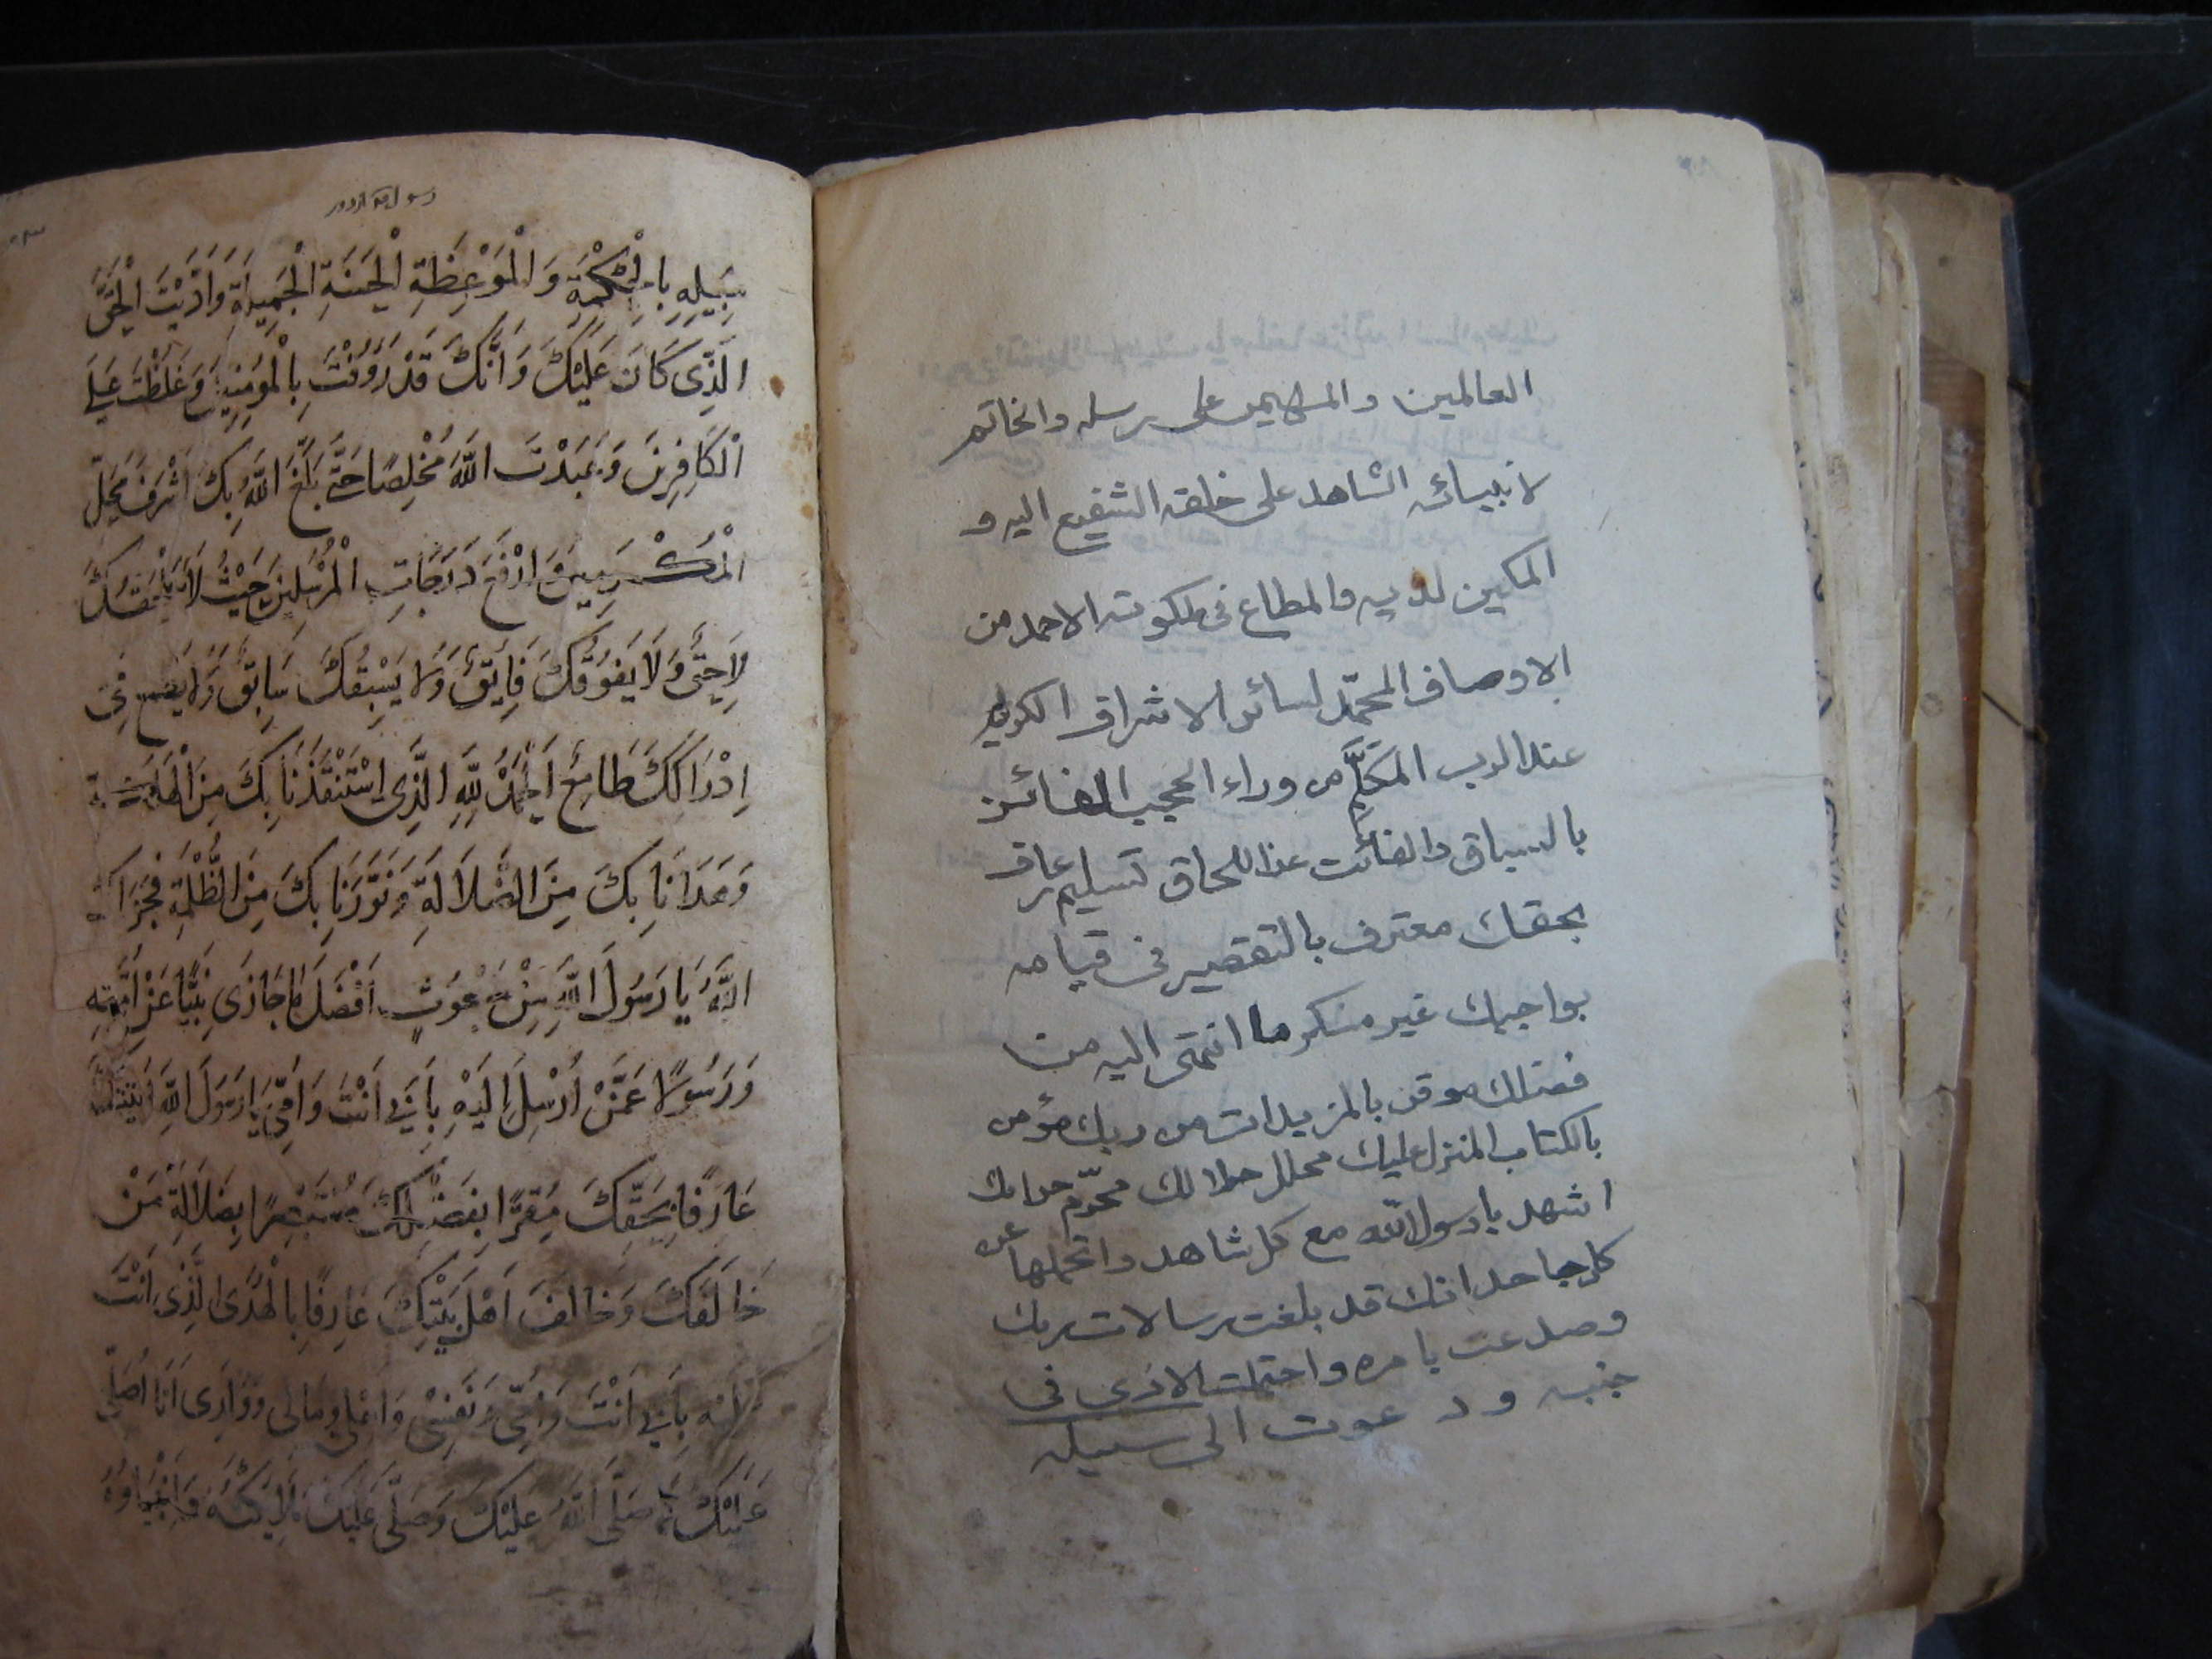 العالمين والمهيمن على رسله والخاتم
لانبيائه الشاهد على خلقه الشفيع اليه و
المكين لديه والمطاع فى ملكوته الاحمد من
الاوصاف المحمّد لسائر الاشراف الكريم
عند الرب المكلَّم من وراء الحجب الفائز
بالسباق والفائت عن اللحاق تسليم عارف
بحقك معترف بالتقصير فى قيامه
بواجبك غير منكر ما انتهى اليه من
فضلك موقن بالمزيدات من ربك مؤمن
بالكتاب المنزل عليك محلل حلالك محرّم حرامك
اشهد يا رسول الله مع كل شاهد واتحملها عن
كل جاحد انك قد بلغت رسالات ربك
وصدعت بامره واحتملت الاذى فى
جنبه ودعوت الى سبيله
سَبِيلِهِ بِالْحِكْمَةِ وَالْمَوْعِظَةِ الْحَسَنَةِ الْجَمِيلَةِ وَاَدَّيْتَ الْحَقَّ
الَّذِى كَانَ عَلَيْكَ وَاَنَّكَ قَدْ رَؤُفْتَ بِالْمُؤمِنِينَ وَغَلَظْتَ عَلَى
الْكَافِرِينَ وَعَبَدْتَ اللهَ مُخْلِصًا حَتَّى بَلَغَ اللهُ بِكَ اَشْرَفَ مَحَلِّ
الْمُكَرَّمِينَ وَارْفَعَ دَرَجَاتِ الْمُرْسَلِينَ حَيْثُ لَا يَلْحَقُكَ
لَاحِقٌ وَلَا يَفُوقُكَ فَائِقٌ وَلَا يَسْبِقُكَ سَابِقٌ وَلَا يَطْمَعُ فِى
اِدْرَاكِكَ طَامِعٌ اَلْحَمْدُ لِلّهِ الَّذِى اسْتَنْقَذَنَا بِكَ مِنَ الْهَلَكَةِ
وَهَدَانَا بِكَ مِنَ الضَّلَالَةِ وَنَوَّرَنَا بِكَ مِنَ الظُّلْمَةِ فَجَزَاكَ
اللهُ يَا رَسُولَ اللهِ مِنْ مَبْعُوثٍ اَفْضَلَ مَا جَازَى نَبِيًّا عَنْ اُمَّتِهِ
وَرَسُولًا عَمَّنْ اُرْسِلَ اِلَيْهِ بِاَبِى اَنْتَ وَاُمِّى يَا رَسُولَ اللهِ
عَارِفًا بِحَقِّكَ مُقِرًّا بِفَضْلِكَ مُسْتَبْصِرًا بِضَلَالَةِ مَنْ
خَالَفَكَ وَخَالَفَ اَهْلَ بَيْتِكَ عَارِفًا بِالْهُدَى الَّذِى اَنْتَ
بِاَبِى اَنْتَ وَاُمِّى وَنَفْسِى وَاَهْلِى وَمَالِى وَوَلَدِى اَنَا اُصَلِّى
عَلَيْكَ كَمَا صَلَّى اللهُ عَلَيْكَ وَصَلَّى عَلَيْكَ مَلَائِكَتُهُ وَاَنْبِيَاؤُهُ